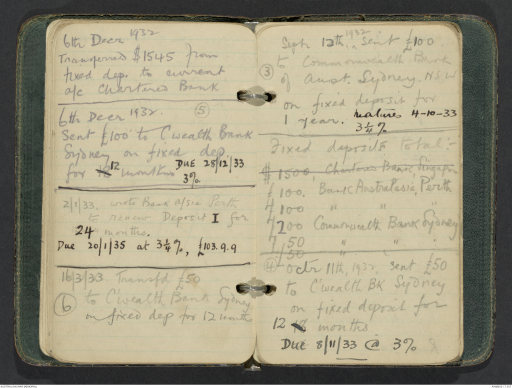 6th Decr 1932
Transferred $1545 from
fixed dep. to current
a/c Chartered Bank
6th Decr 1932. (5)
Sent £100 to C'wealth Bank
Sydney on fixed dep.
for 12 months DUE 28/12/33
3%
2/1/33. wrote Bank a/sia Perth
to renew Deposit I for
24 months.
Due 20/1/35 at 3¼%, £103.9.9
16/3/33. Transf'd £50
(6) to C'wealth Bank Sydney
on fixed dep for 12 months
Sept 12th, 1932 sent £100
(3) to Commonwealth Bank
of Aust. Sydney. N.S.W
on fixed deposit for
1 year. matures 4-10-33
3¼%
Fixed deposits total:-
$1500, Chartered Bank, Singapore
£100. Bank Australasia, Perth
£100 " "
£200 Commonwealth Bank Sydney
£50 " " "
£50 " " "
(4) Octr 11th, 1932, sent £50
to C'wealth BK Sydney
on fixed deposit for
12 months
Due 8/11/33 @ 3%